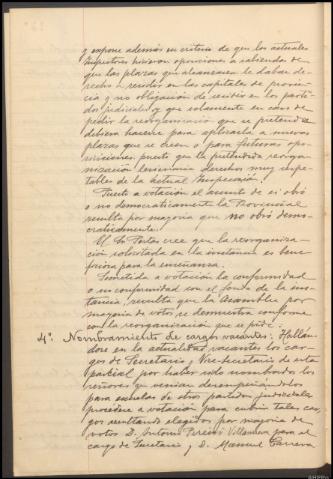 y expone además su criterio de que los actuales
Inspectores hicieron oposiciones a sabiendas de
que las plazas que alcanzasen le daban de-
recho a residir en las capitales de provin-
cia y no obligación de residir en los parti-
dos judiciales y que solamente en caso de
pedir la reorganización que se pretende
debiera hacerse para aplicarla a nuevas
plazas que se creen o para futuras opo-
siciones puesto que la pretendida reorga-
nización lesionaría derechos muy respe-
tables de la actual Inspección.
Puesto a votación el asunto de si obró
o no democraticamente la Provincial
resulta por mayoría que no obró demo-
craticamente.
El Sr. Portas cree que la reorganiza-
ción solicitada en la instancia es bene-
ficiosa para la enseñanza.
Sometida a votación la conformidad
o no conformidad con el fondo de la ins-
tancia, resulta que la Asamblea por
mayoría de votos se demuestra conforme
con la reorganización que se pide.
4º. Nombramiento de cargos vacantes: Hallán-
dose en la actualidad vacante los car-
gos de Secretario y Vice-Secretario de esta
parcial por haber sido nombrados los
señores que venían desempeñándolos
para escuelas de otro partido judicial se
procede a votación para cubrir tales car-
gos resultando elegidos por mayoría de
votos D. Antonio Pereiro Villanueva para el
cargo de Secretario y D. Manuel